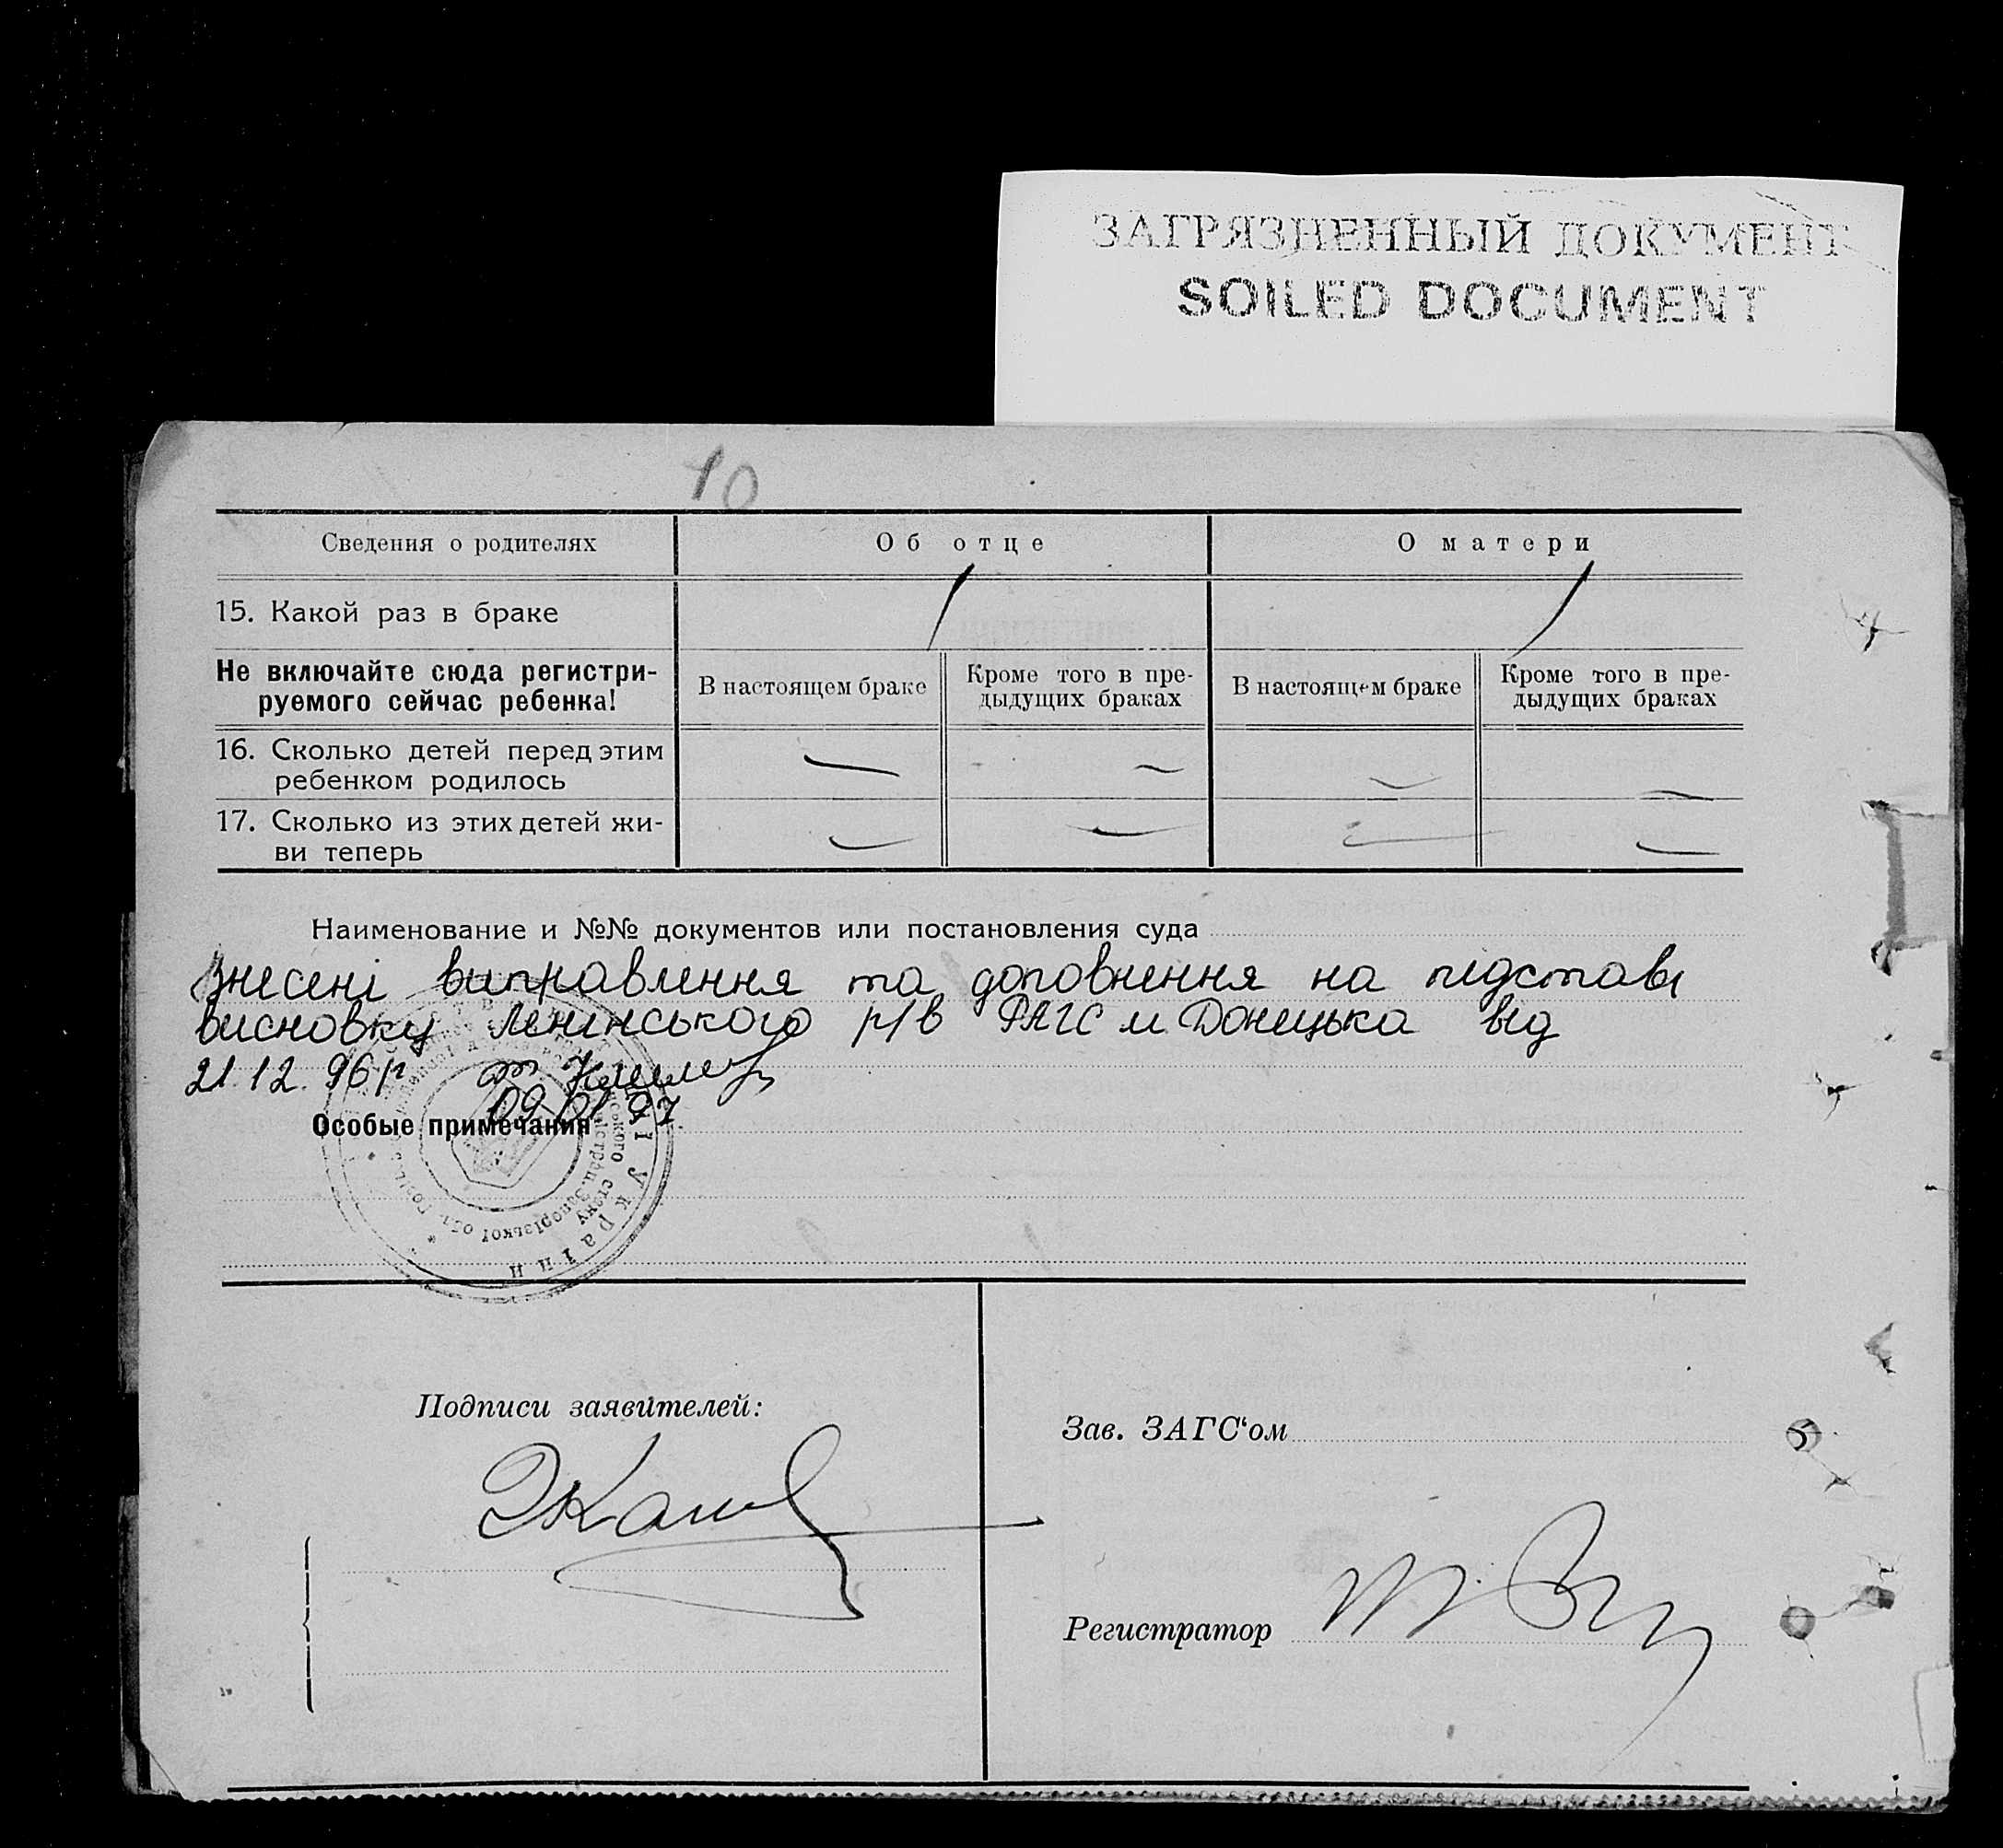 ЗАГРЯЗНЕННЫЙ ДОКУМЕНТ
SOILED DOCUMENT
10
Сведения о родителях
Об отце
О матери
15. Какой раз в браке
/
/
Не включайте сюда регистри-
руемого сейчас ребенка!
В настоящем браке
Кроме того в пре-
дыдущих браках
В настоящем браке
Кроме того в пре-
дыдущих браках
16. Сколько детей перед этим
ребенком родилось
— — — —
17. Сколько из этих детей жи-
ви теперь
— — — —
Наименование и №№ документов или постановления суда
Внесені виправлення та доповнення на підставі
висновку Ленінського р/в РАГС м. Донецька від
21.12.96 р
09 01 97
Особые примечания
України
Подписи заявителей:
Зав. ЗАГС'ом
Регистратор